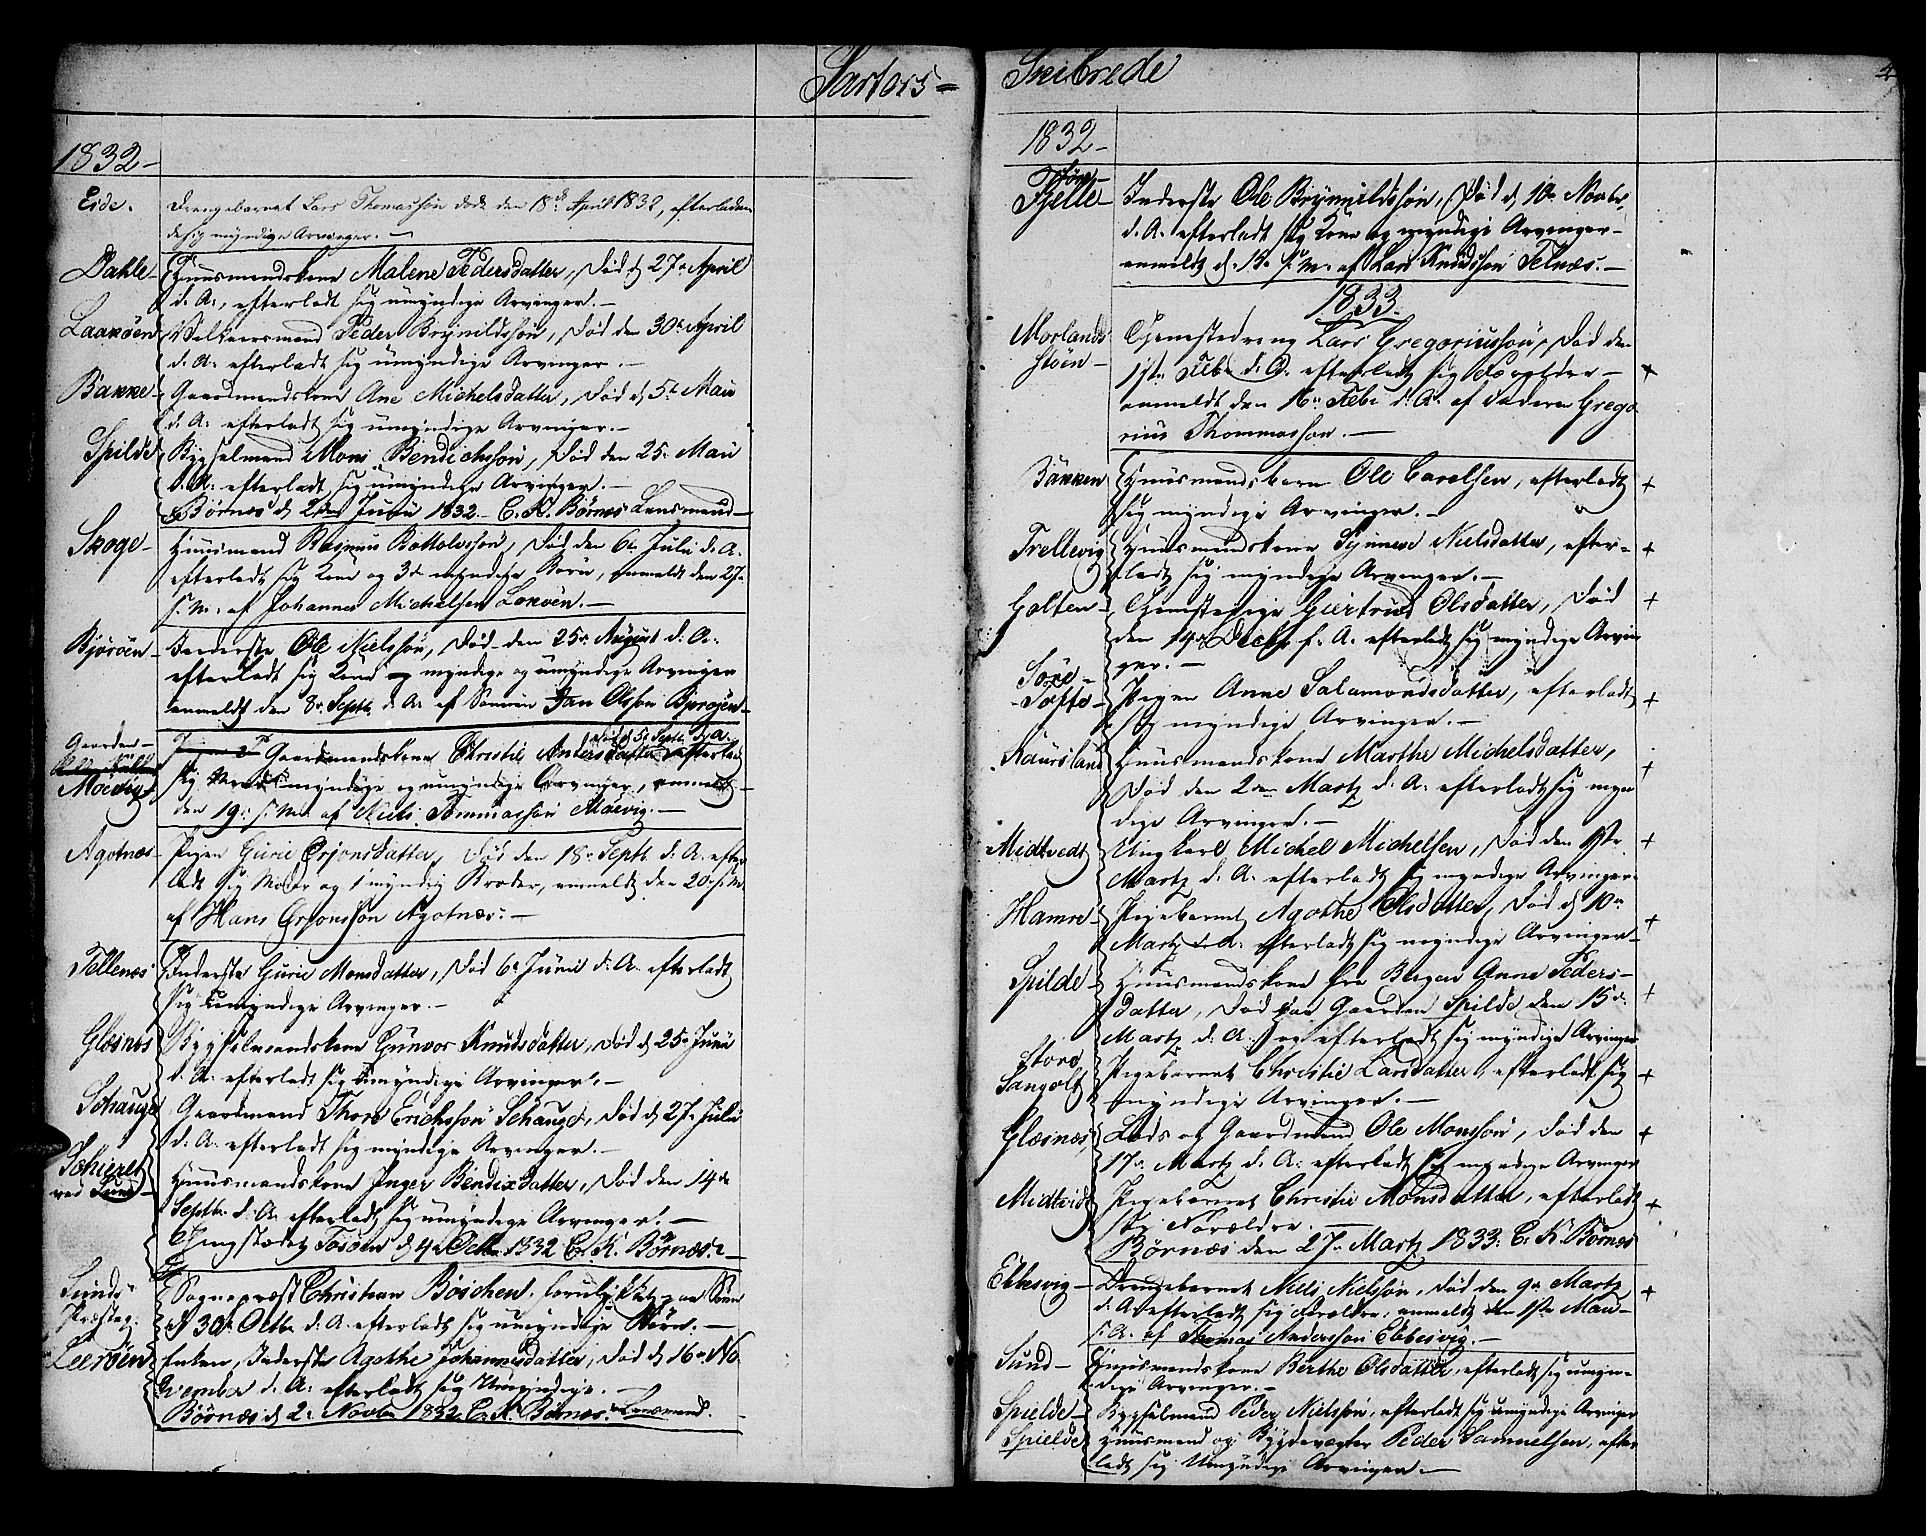 Sartors-
1832-
Eide. Drengebarnet Lars Thomassøn døde den 18de April 1832, efterladen
de sig myndige Arvinger.-
Dahle- Huusmandskone Malene Pedersdatter, død d. 27de April
d. A., efterladt sig umyndige Arvinger.-
Laaxøen Peder Brynildssøn, død den 30te April
d. A. efterladt sig umyndige Arvinger.-
Bakke- Gaardmandskone Ane Michelsdatter, død d. 5te Maii
d. A. efterladt sig umyndige Arvinger.-
Spilde Bygselmand Mons Bendichssøn, død den 25. Maii
d. A. efterladt sig umyndige Arvinger.-
Børnæs d. 2den Junii 1832. C. K. Børnæs Lensmand-
Skoge- Huusmand Rasmus Bottolvssøn, død den 6te Julii d. A.
efterladt sig Kone og 3de myndige Børn, anmeldt den 27.
s. M. af Johannes Michelsen Lokøen.-
Bjorøen- Inderste Ole Nielssøn, død den 25de August d. A.
efterladt sig Kone og myndige og umyndige Arvinger
anmeldt den 8de Septb. d. A. af Sønnen Jan Olsøn Bjorøen-
død d. 5te Septb. d. A.
Gaarden-
Moevig Gaardmandskone Christie Andersdatter efterladt
sig Mand myndige og umyndige Arvinger, anmeldt
den 19. s. M. af Niels Tommassøn Moevig.-
Agotnæs- Pigen Gurie Ørjansdatter, død den 18. Septb. d. A. efter
ladt sig Moder og 1 myndig Broder, anmeldt den 20. s. M.
af Hans Ørjanssøn Agotnæs.-
Tellenæs Inderste Gurie Monsdatter, død 6te Junii d. A. efterladt
sig umyndige Arvinger.-
Glæsnæs Bygselmandskone Gunvor Knudsdatter, død d. 25de Junii
d. A. efterladt sig umyndige Arvinger.-
Schauge Gaardmand Thore Erichssøn Schauge, død d. 27de Julii
d. A. efterladt sig myndige Arvinger.-
Schieret
ved Sund- Huusmandskone Inger Bendixdatter, død den 14de
Septb. d. A. efterladt sig umyndige Arvinger.-
Thingstædet d. 4de Octb. 1832 C. K. Børnæs.-
Sunds
Præsteg. Sognepræst Christian Böschen, forulykket paa Søen
d. 30te Octb. d. A. efterladt sig umyndige Børn.-
Leerøen Enken, Inderste Agothe Johannesdatter, død d. 16de No-
vember d. A. efterladt sig Umyndige.-
Børnæs d. 2. Novbr 1832 C. K. Børnæs. Lensmand.
Skibrede
4
1832-
Søre-
Fjelle- Inderste Ole Brynnildssøn, død d. 10de Novbr.
d. A. efterladt sig Kone og myndige Arvinger-
anmeldt d. 13. s. M. af Lars Knudssøn Telnæs.-
1833.
Morlands
støen- Tjenestedreng Lars Gregoriussøn, død den
11te Feb. d. A. efterladt sig Forældre- +
anmeldt den 16de Feb. d. A. af Faderen Grego
rius Thommassøn.-
Bäkken Huusmandsbarn Ole Carelsen, efterladt +
sig myndige Arvinger.-
Trellevig Huusmandskone Synneve Nielsdatter, efter- +
ladt sig myndige Arvinger.-
Golten- Tjenestepige Giertrud Olsdatter, død +
den 14de Decbr. f. A. efterladt sig myndige Arvin
ger.-
Söre-
Tofte- Pigen Anne Salamondsdatter, efterladt +
sig myndige Arvinger.-
Kausland Huusmandskone Marthe Michelsdatter, +
død den 2den Martz d. A. efterladt sig myn
dige Arvinger.-
Midtvedt Ungkarl Michel Michelsen, død den 9de +
Martz d. A. efterladt sig myndige Arvinger.
Hamre- Pigebarnet Agothe Olsdatter, død d. 10de +
Martz d. A. efterladt sig myndige Arvinger-
Spilde- Huusmandskone fra Bergen Anne Peders- +
datter, død paa Gaarden Spilde den 15de
Martz d. A. og efterladt sig myndige Arvinger
Store
Sangolt Pigebarnet Christie Larsdatter, efterladt sig +
myndige Arvinger.-
Glæsnæs Lods og Gaardmand Ole Monssøn, død den +
17de Martz d. A. efterladt sig myndige Arvinger
Midtvedt Pigebarnet Christie Monsdatter, efterladt +
sig Forældre.-
Børnæs den 27de Martz 1833. C. K. Børnæs
Ebbesvig- Drengebarnet Niels Nielssøn, død den 9de Martz +
d. A. efterladt sig Forældre, anmeldt den 1ste Maii-
s. A. af Thomas Anderssøn Ebbesvig.-
Sund- Huusmandskone Berthe Olsdatter, efterladt sig umyn-
dige Arvinger.-
Spielde- Bygselmand Peder Nielssøn, efterladt sig umyndige Arvinger
Spielde Huusmand og Bygdevægter Peder Samuelsen, efter
ladt sig Umyndige Arvinger.-